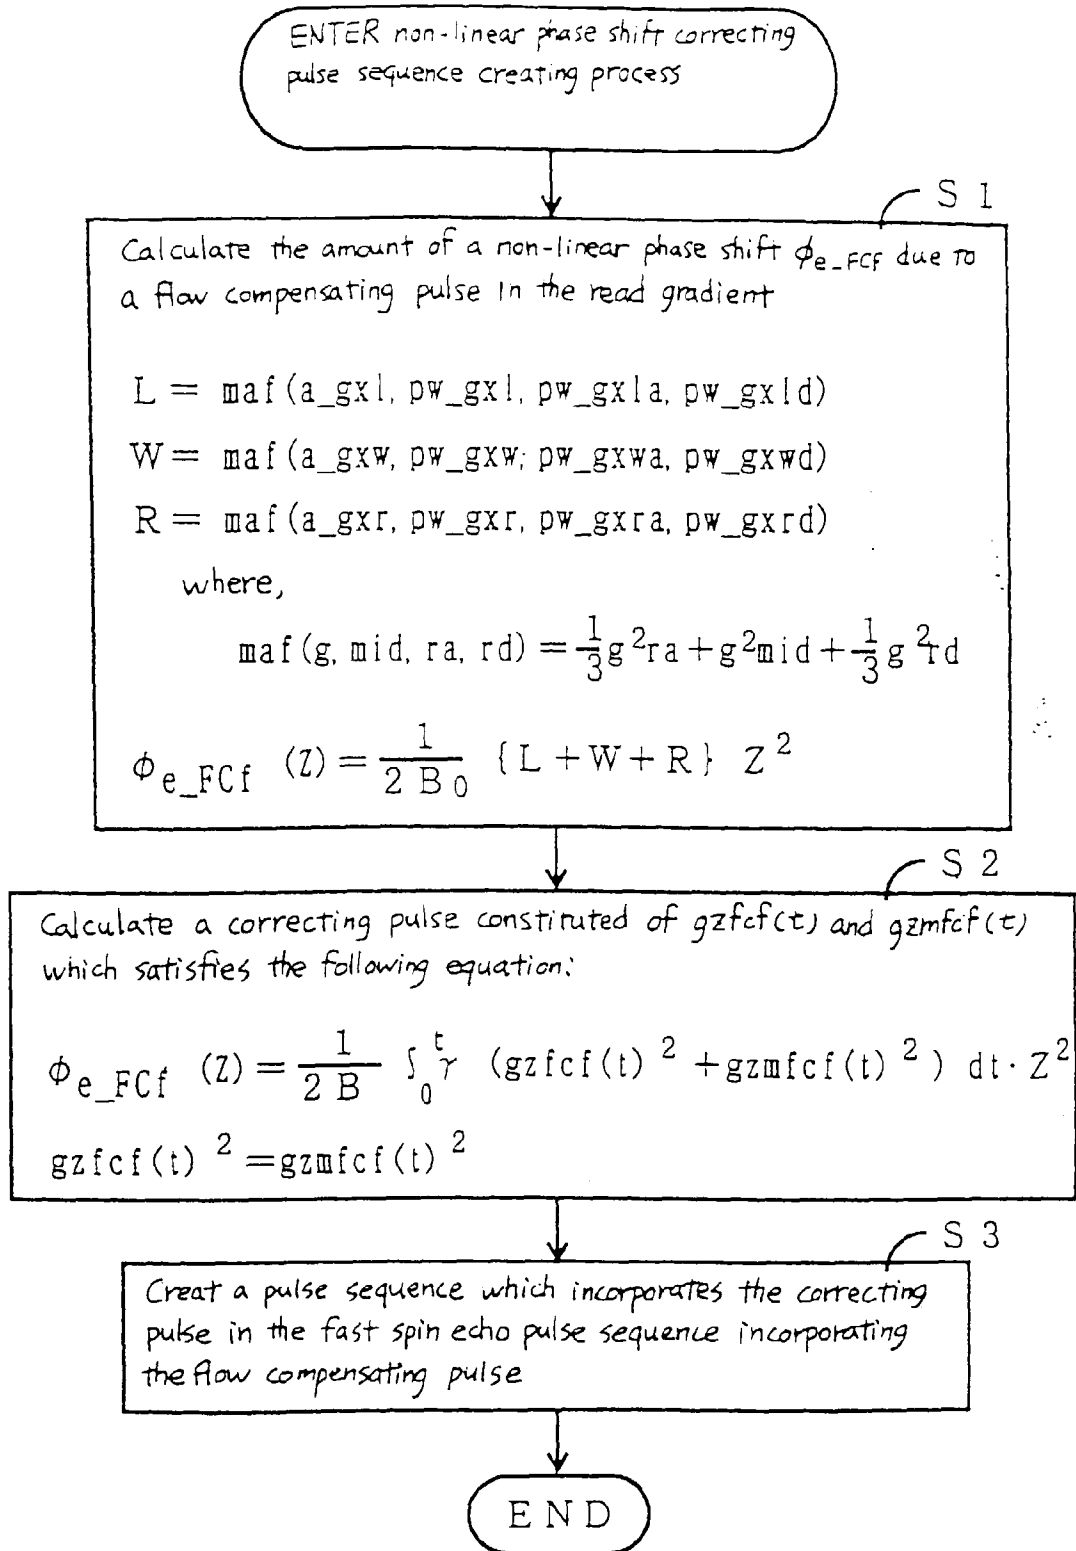 ENTER non-linear phase shift correcting
pulse sequence creating process
S 1
Calculate the amount of a non-linear phase shift ϕe_FCf due to
a flow compensating pulse in the read gradient
L = maf (a_gxl, pw_gxl, pw_gxla, pw_gxld)
W = maf (a_gxw, pw_gxw; pw_gxwa, pw_gxwd)
R = maf (a_gxr, pw_gxr, pw_gxra, pw_gxrd)
where,
maf (g, mid, ra, rd) = 1/3 g²ra + g²mid + 1/3 g²rd
ϕe_FCf (Z) = 1/(2 B₀) {L + W + R} Z²
S 2
Calculate a correcting pulse constituted of gzfcf(t) and gzmfcf(t)
which satisfies the following equation:
ϕe_FCf (Z) = 1/(2 B) ∫₀ᵗ γ (gzfcf(t)² + gzmfcf(t)²) dt · Z²
gzfcf(t)² = gzmfcf(t)²
S 3
Creat a pulse sequence which incorporates the correcting
pulse in the fast spin echo pulse sequence incorporating
the flow compensating pulse
END